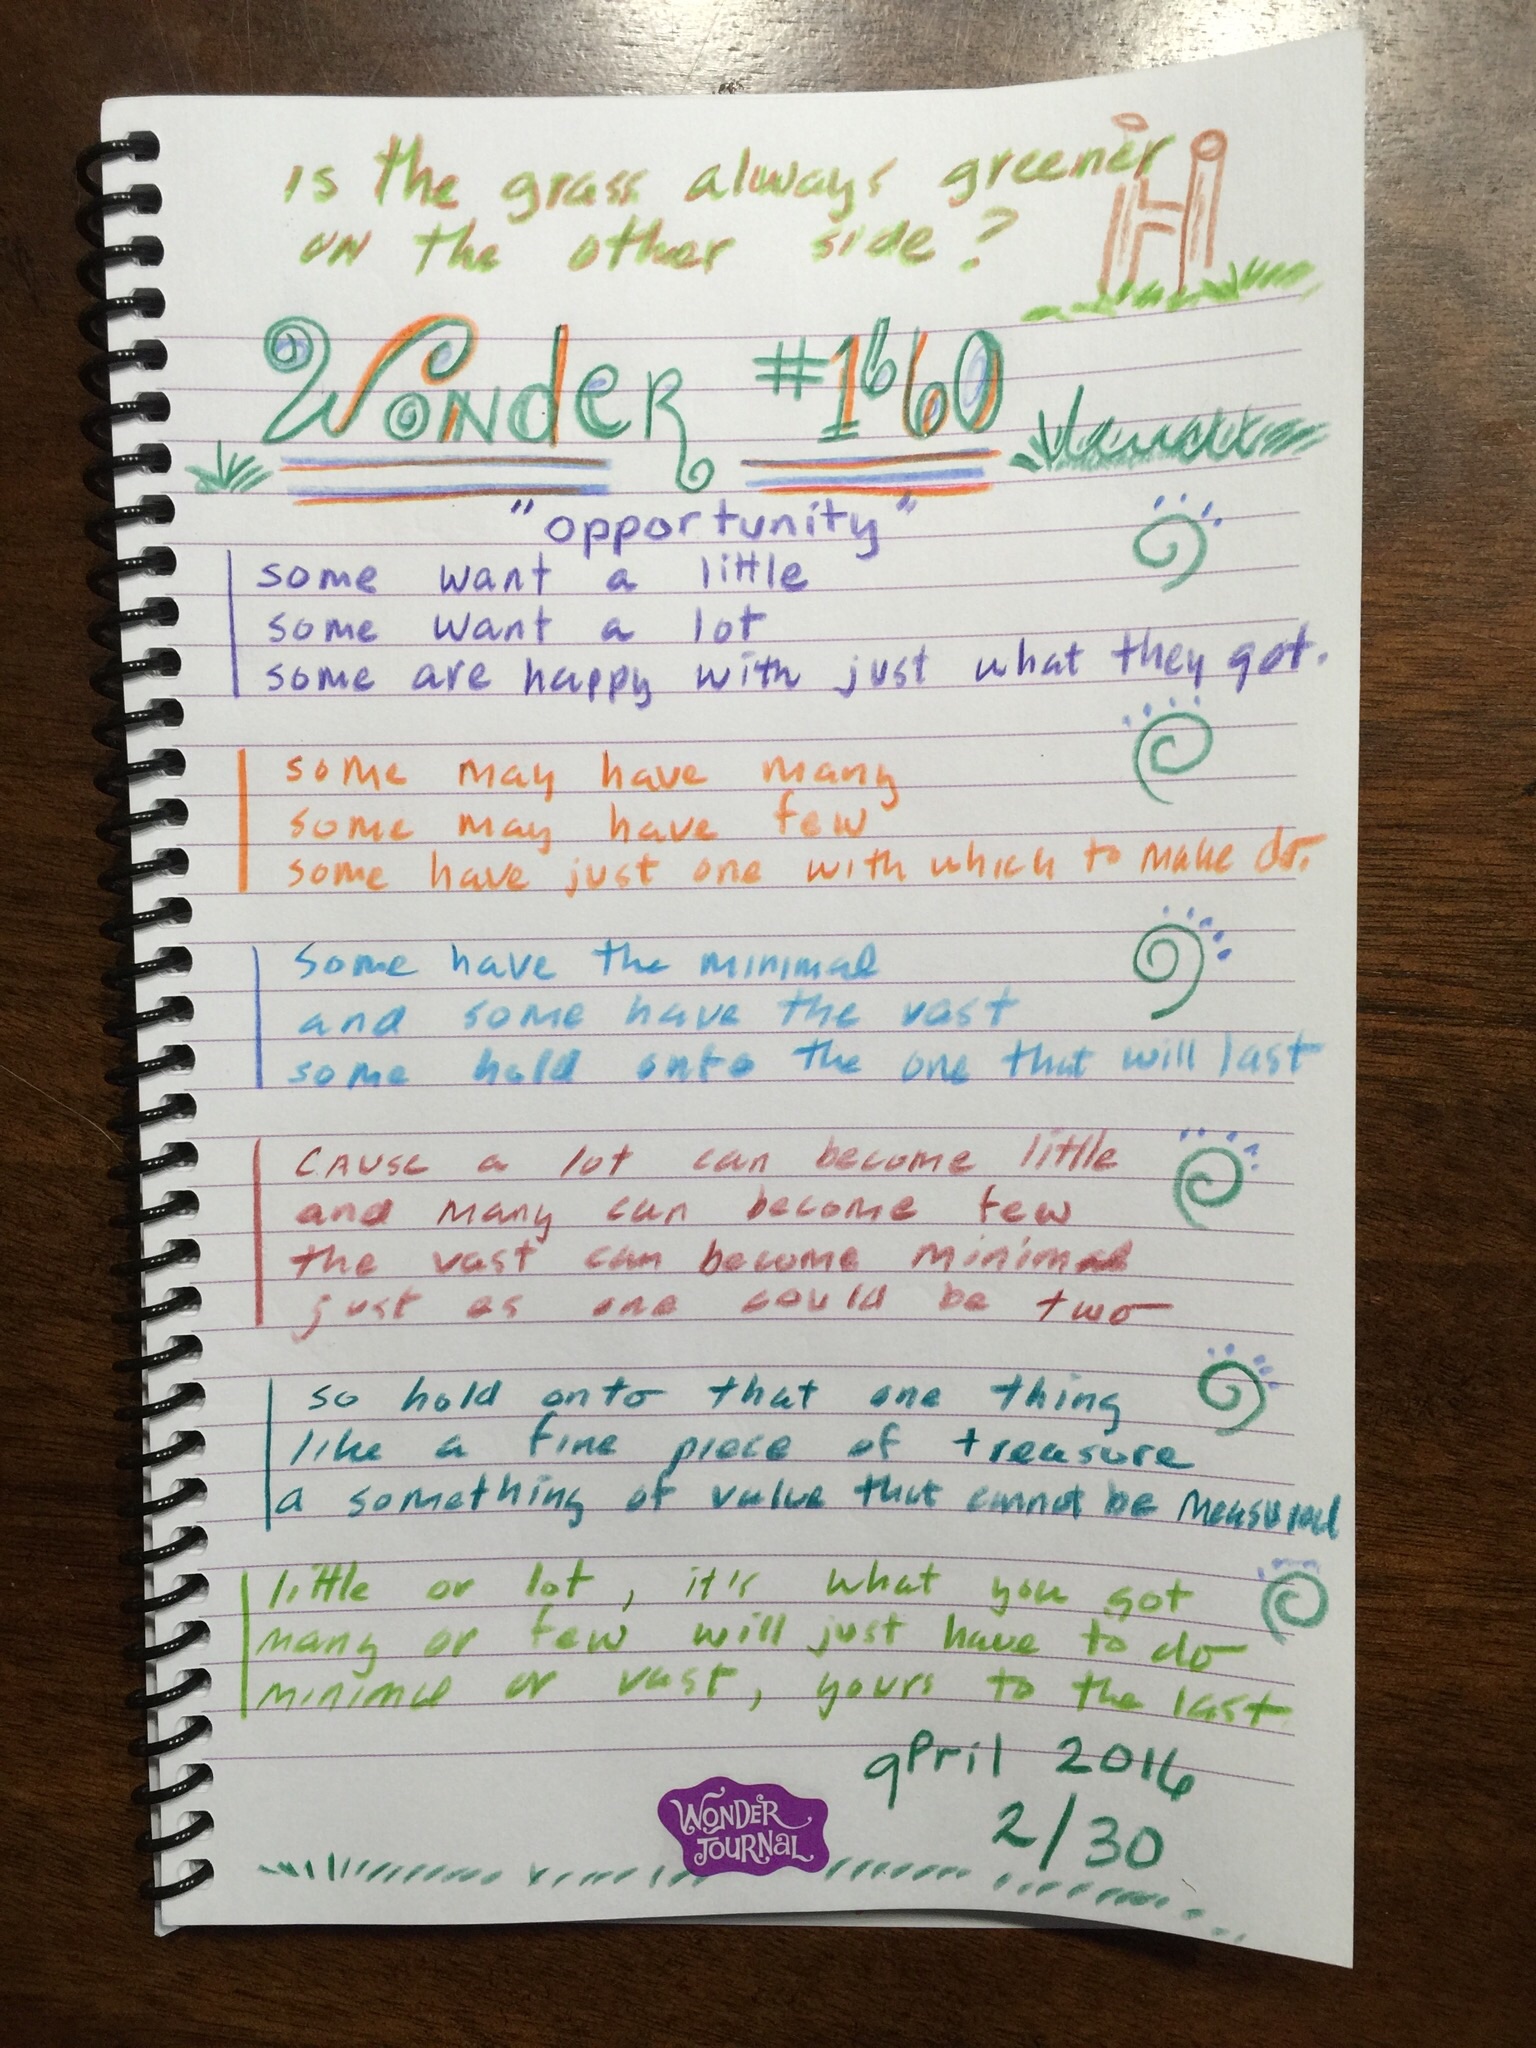 is the grass always greener
on the other side?
Wonder #1660
"opportunity"
some want a little
some want a lot
some are happy with just what they got.
some may have many
some may have few
some have just one with which to make do.
some have the minimal
and some have the vast
some hold onto the one that will last
cause a lot can become little
and many can become few
the vast can become minimal
just as one could be two
so hold onto that one thing
like a fine piece of treasure
a something of value that cannot be measured
little or lot, it's what you got
many or few will just have to do
minimal or vast, yours to the last.
april 2016
2/30
WONDER
JOURNAL